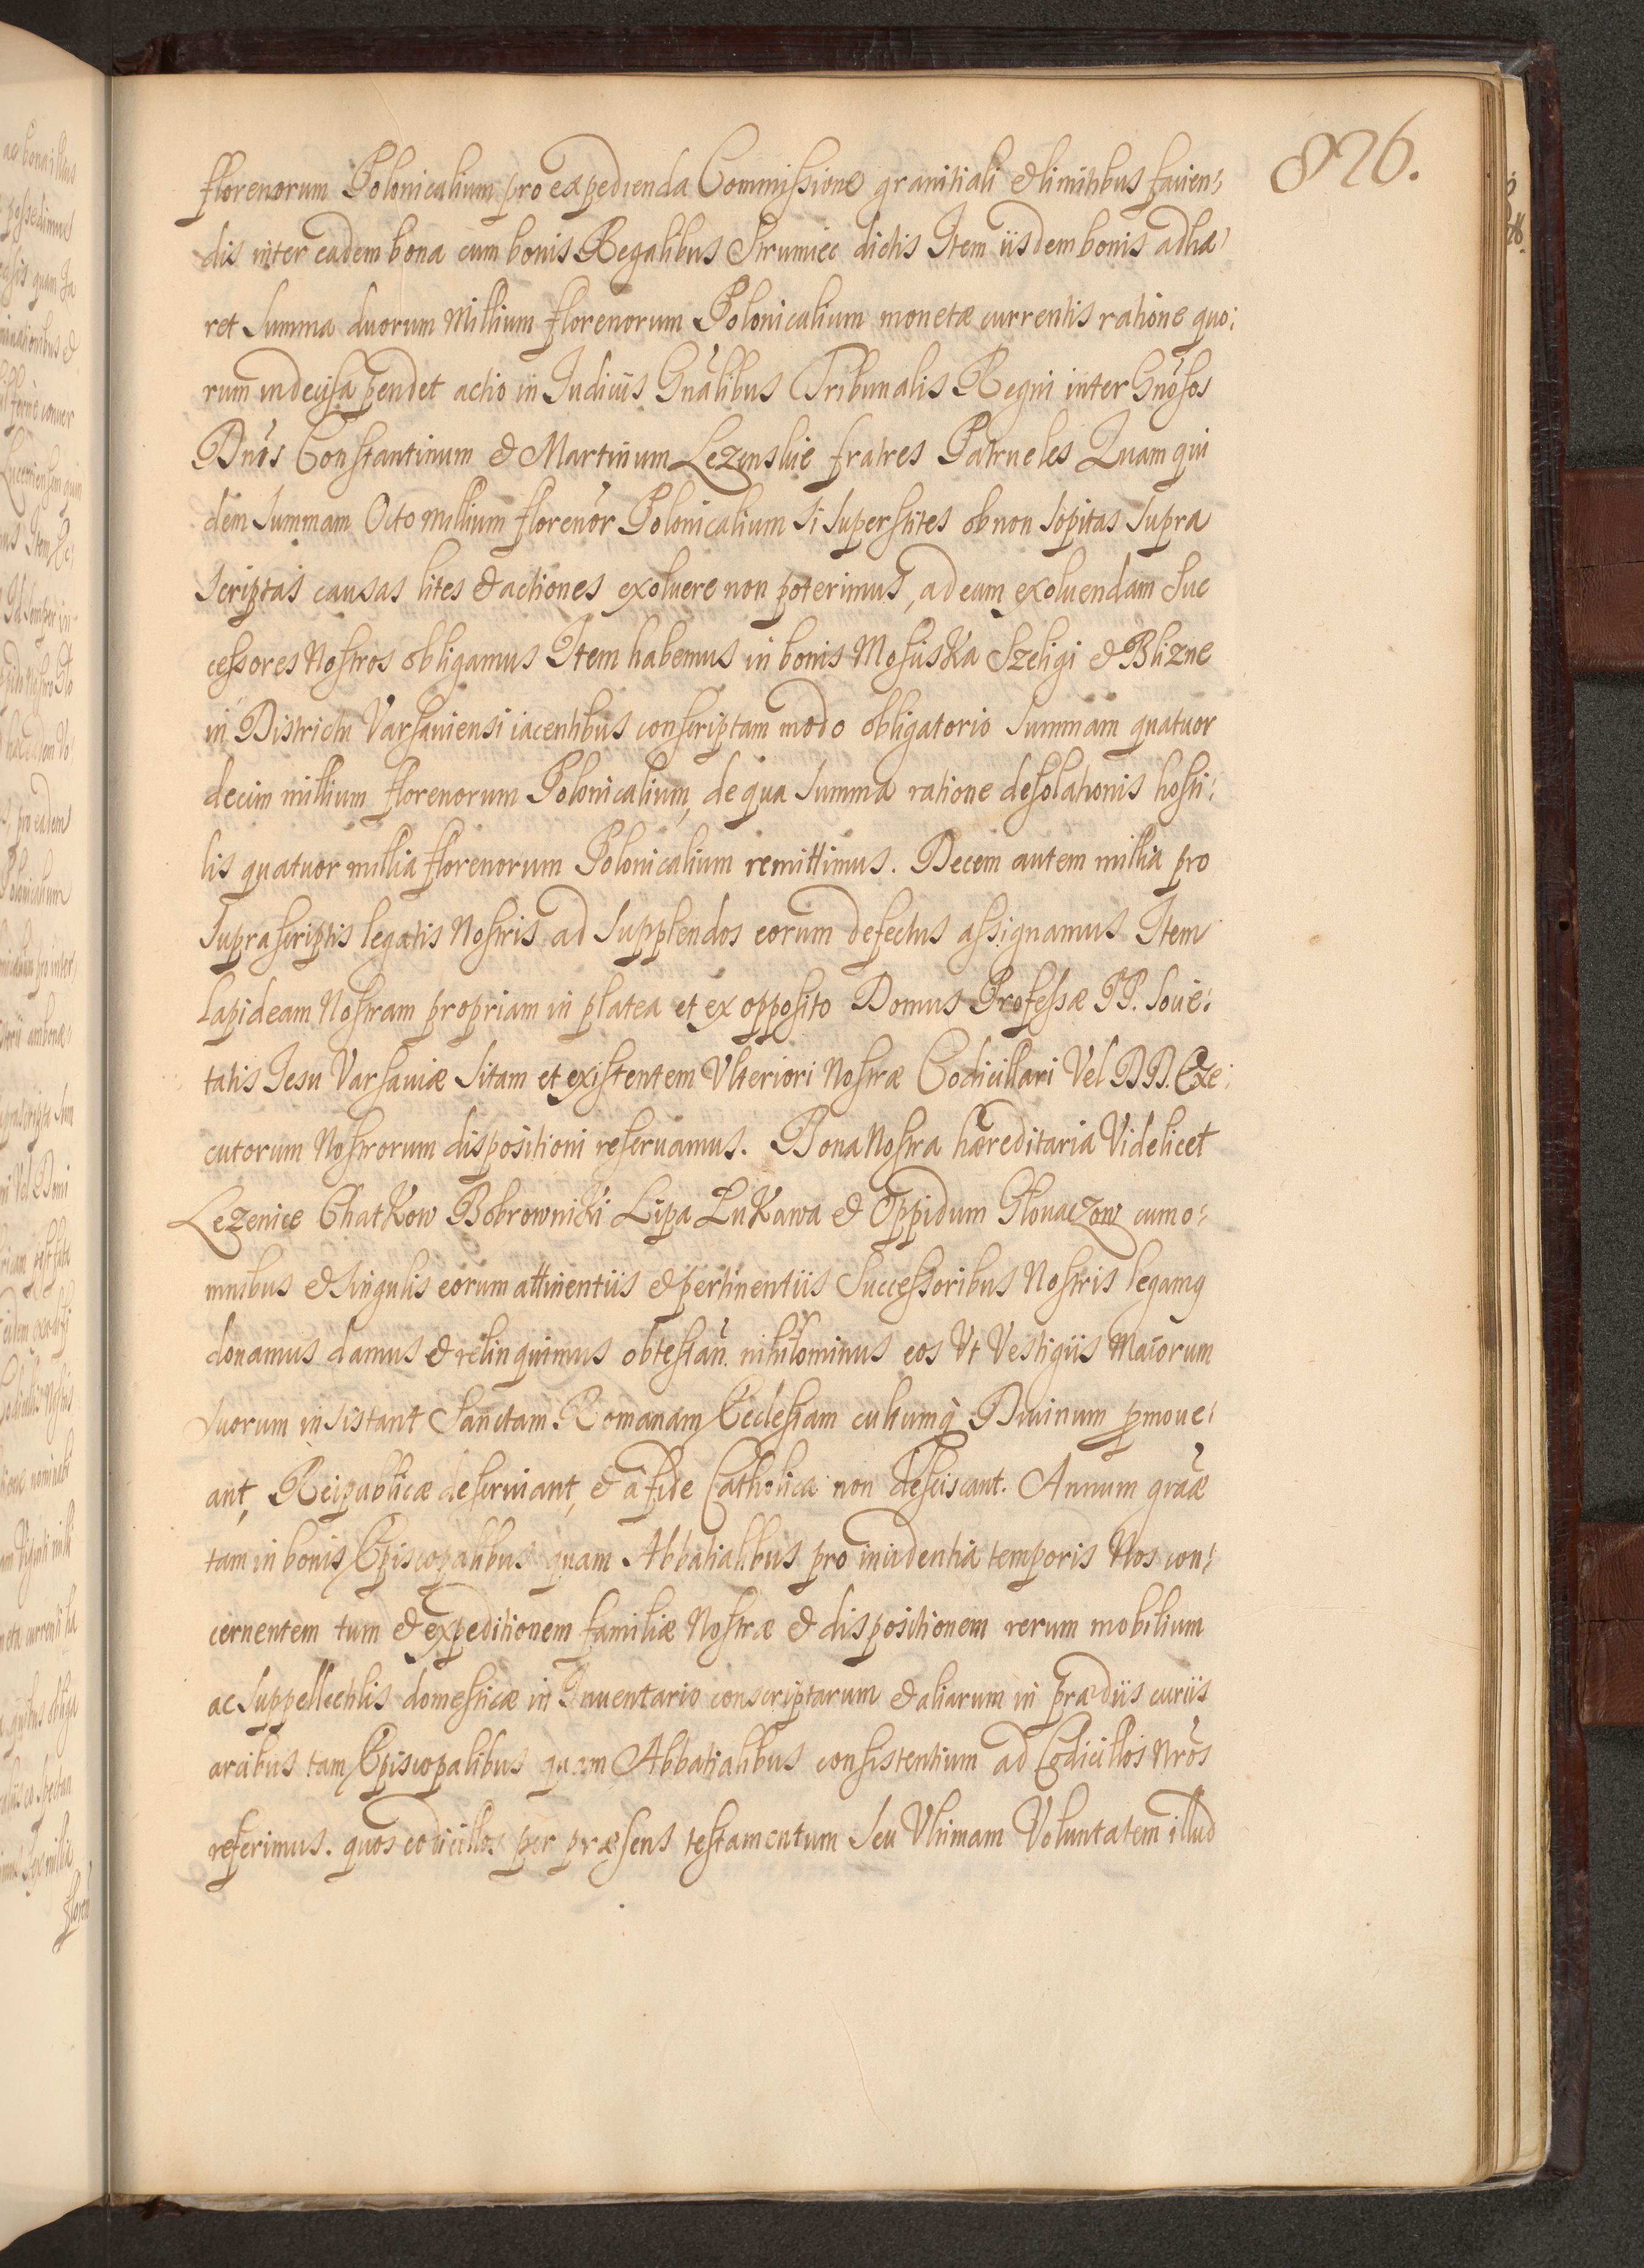 826.
florenorum Polonicalium pro expedienda Commissione granitiali & limitibus facien:
dis inter eadem bona cum bonis Regalibus Strumiec dictis Item iisdem bonis adhæ:
ret Summa duorum Millium florenorum Polonicalium monetæ currentis ratione quo:
rum indecisa pendet actio in Iudiciis Gnãlibus Tribunalis Regni inter Gnõsos
Dnõs Constantinum & Martinum Lezenskie fratres Patrueles Quam qui
dem Summam Octo millium florenõr Polonicalium si Superstites ob non Sopitas Supra
Scriptas causas lites & actiones exoluere non poterimus, ad eam exoluendam Suc
cessores Nostros obligamus Item habemus in bonis Mosciska Szeligi & Blizne
in Districtu Varsauiensi iacentibus conscriptam modo obligatorio Summam quatuor
decim millium florenorum Polonicalium, de qua Summa ratione desolationis hosti:
lis quatuor millia florenorum Polonicalium remittimus. Decem autem millia pro
Suprascriptis legatis Nostris ad Supplendos eorum defectus assignamus Item
Lapideam Nostram propriam in platea et ex opposito Domus Professæ PP. Socie:
tatis Iesu Varsauiæ Sitam et existentem Vlteriori Nostræ Codicillari Vel DD. Exe:
cutorum Nostrorum dispositioni reseruamus. Bona Nostra hæreditaria Videlicet
Lezenice Chatkow Bobrowniki Lipa Lukawa & Oppidum Glouaczow cum o:
mnibus & Singulis eorum attinentiis & pertinentiis Successoribus Nostris legamq
donamus damus & relinquimus obtestañ. nihilominus eos Vt Vestigiis Maiorum
Suorum insistant Sanctam Romanam Ecclesiam cultumq Diuinum pmoue:
ant, Reipublicæ deseruiant, & a fide Catholica non desciscant. Annum grãæ
tam in bonis Episcopalibus quam Abbatialibus pro incidentia temporis Nos con:
cernentem tum & expeditionem familiæ Nostræ & dispositionem rerum mobilium
ac Suppellectilis domesticæ in Inuentario conscriptarum & aliarum in prædiis curiis
arcibus tam Episcopalibus quam Abbatialibus consistentium ad Codicillos Nrõs
referimus. quos codicillos per præsens testamentum Seu Vltimam Voluntatem illud